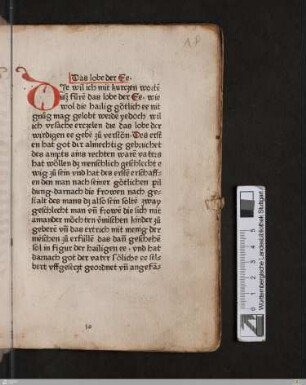 Das lobe der Ee.
Je wil ich mit kurczen wortē
für das lobe der Ee. wie
wol die hailig götlich ee nit
gnůg mag gelobt werdē yedoch wil
ich vrsache erczelen die das lobe der
wirdigen ee gebē zů verstōn. Des erstē
hat got der almechtig gebruchet
des ampts ains rechten warē vatters
hat wöllen dz menschlich geschlecht e
wig zů sein vnd hat des erstē erschaff
en den man nach seiner götlichen
bildung darnach die frowen nach ge
stalt des mans dz also sein solte zway
geschlecht man vn̄ frowe die sich mit
ainander möchten
kinder zů
geberē vn̄ das ertrich mit menig der
mēschen zů erfüllē das dan̄ geschehē
sol in figur der hailigen ee. vnd hat
darnach got der vatter söliche ee selbs
vffgesetzt geordnet vn̄ angefāg
Württembergische Landesbibliothek Stuttgart